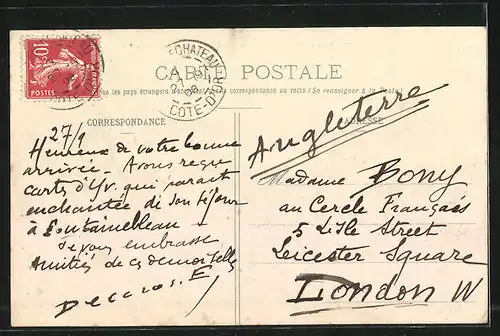 10c
POSTES
CHATEAU
COTE-D'OR
CARTE POSTALE
pays étrangers correspondance au recto (Se renseigner à la Poste)
CORRESPONDANCE
Angleterre
27/9
Heureux de votre bonne
arrivée. Avons reçu
carte d'Yv. qui parait
enchantée de son séjour
à Fontainebleau
Je vous embrasse
Amitiés de ces demoiselles
Madame Bony
au Cercle Français
5 Lisle Street
Leicester Square
London W